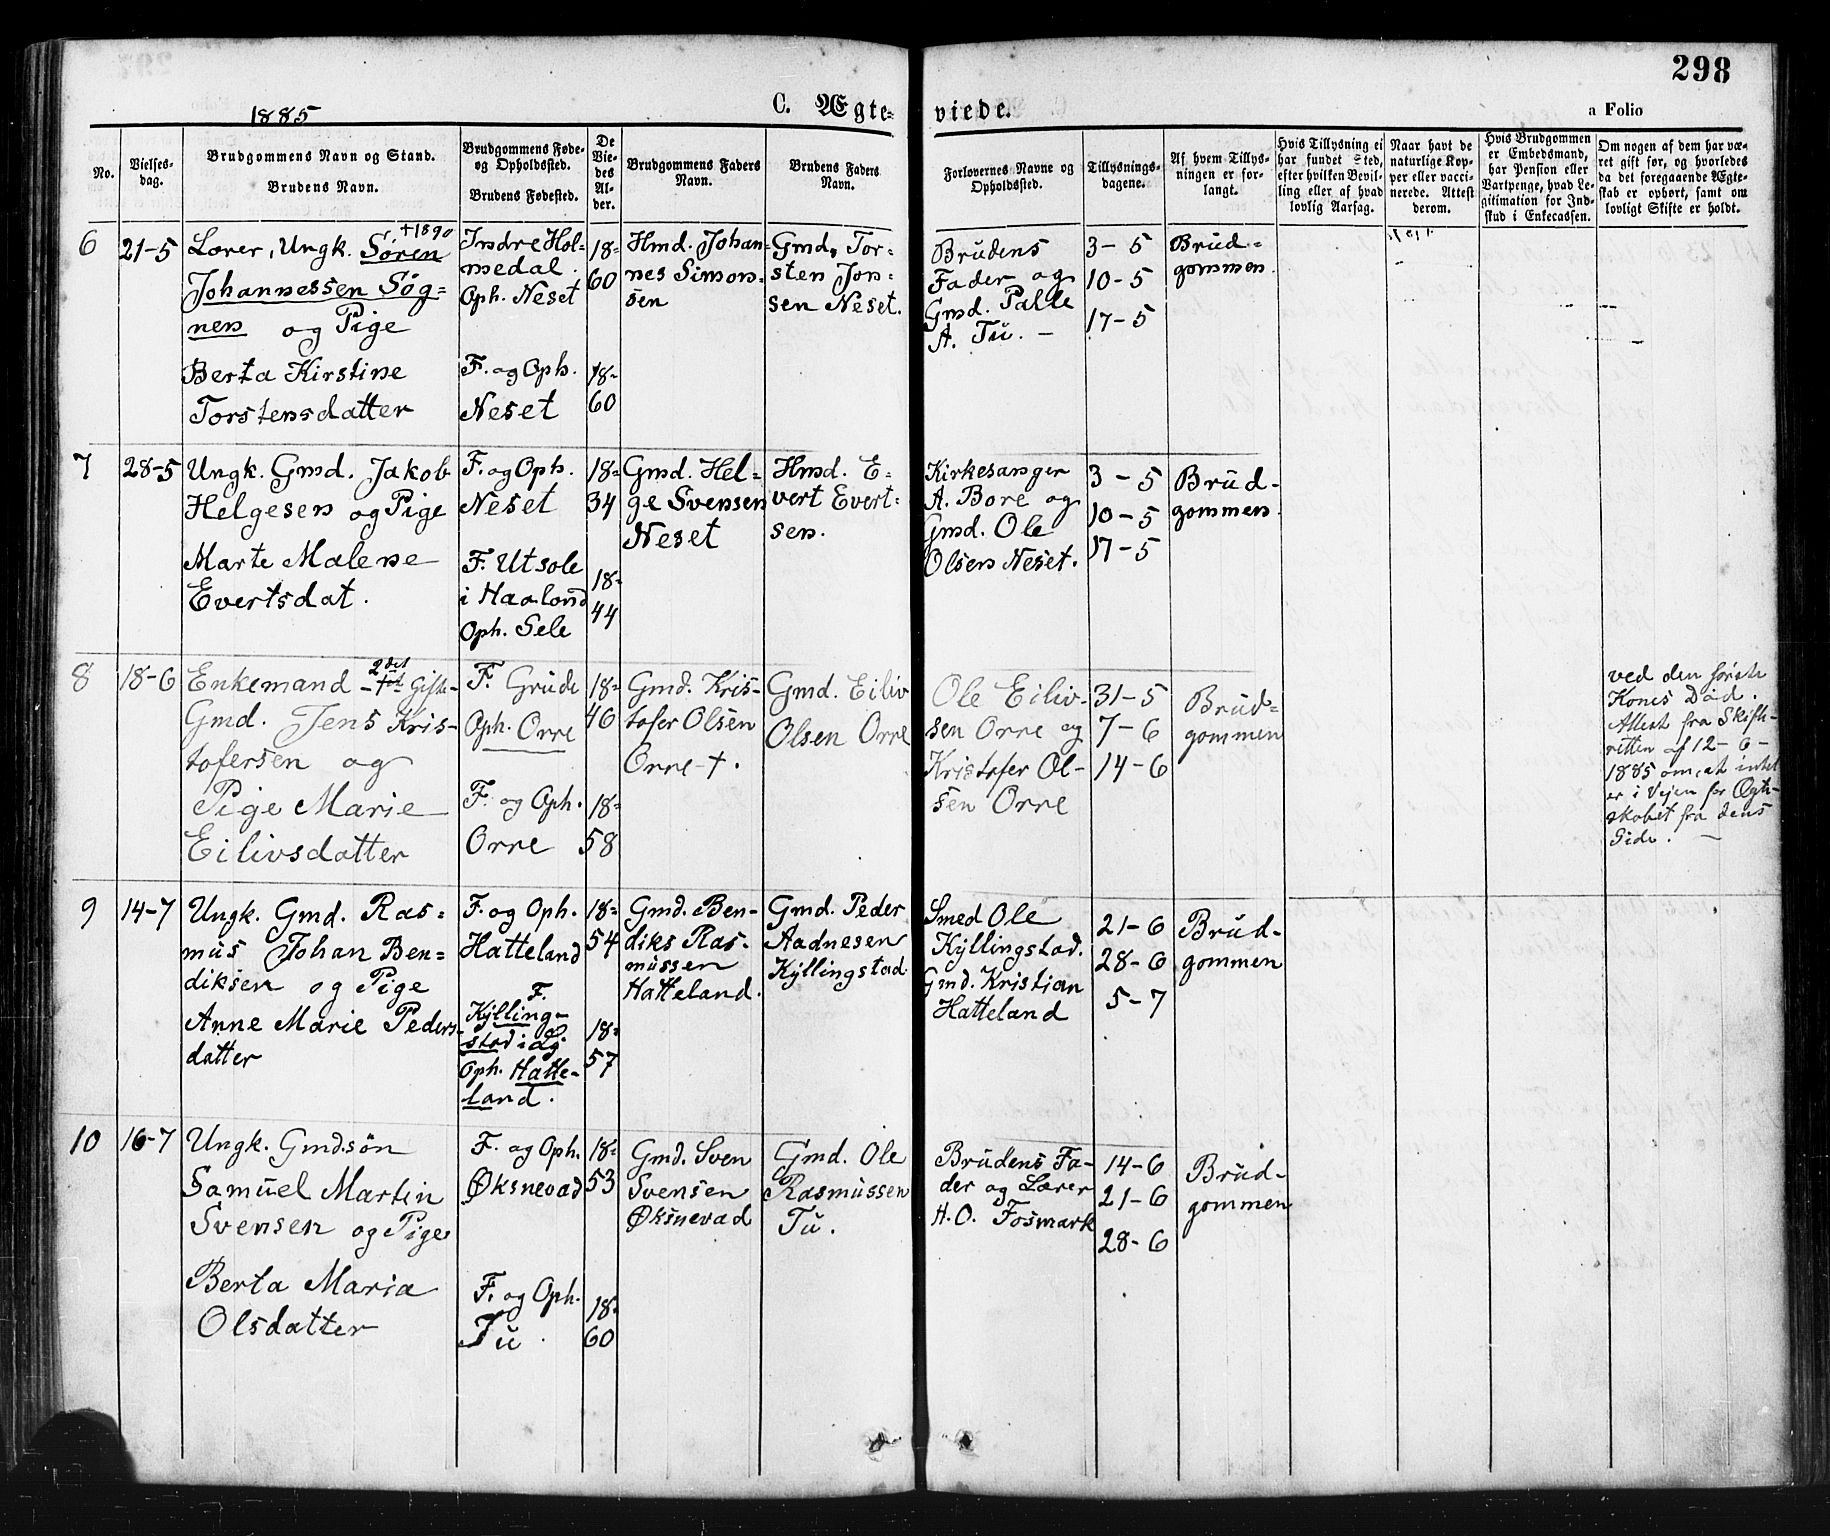 298
1885
C. Ægte-
viede.
a Folio
No.
Vielses-
dag.
Brudgommens Navn og Stand.
Brudens Navn.
Brudgommens Føde-
og Opholdsted.
Brudens Fødested.
De
Vie-
des
Al-
der.
Brudgommens Faders
Navn.
Brudens Faders
Navn.
Forlovernes Navne og
Opholdsted.
Tillysnings-
dagene.
Af hvem Tillys-
ningen er for-
langt.
Hvis Tillysning ei
har fundet Sted,
efter hvilken Bevil-
ling eller af hvad
lovlig Aarsag.
Naar havt de
naturlige Kop-
per eller vacci-
nerede. Attest
derom.
Hvis Brudgommen
er Embedsmand,
har Pension eller
Vartpenge, hvad Le-
gitimation for Ind-
skud i Enkecassen.
Om nogen af dem har væ-
ret gift før, og hvorledes
da det foregaaende Ægte-
skab er ophørt, samt om
lovligt Skifte er holdt.
6
21-5
+1890
Lærer, Ungk. Søren
Johannessen Søg-
nen og Pige
Berta Kirstine
Torstensdatter
Indre Hol-
medal.
Oph. Neset
F. og Oph.
Neset
18-
60
18-
60
Hmd. Johan-
nes Simon-
sen
Gmd. Tor-
sten Jon-
sen Neset.
Brudens
Fader og
Gmd. Palle
A. Tu. -
3-5
10-5
17-5
Brud-
gommen.
7
28-5
Ungk. Gmd. Jakob
Helgesen og Pige
Marte Malene
Evertsdat.
F. og Oph.
Neset
F. Utsole
i Haaland
Oph. Sele
18-
34
18-
44
Gmd. Hel-
ge Svensen
Neset
Hmd. E-
vert Evert-
sen.
Kirkesanger
A. Bore og
Gmd. Ole
Olsen Neset.
3-5
10-5
17-5
Brud-
gommen.
8
18-6
2det
Enkemand Gifte-
Gmd. Jens Kris-
tofersen og
Pige Marie
Eilivsdatter
F. Grude
Oph. Orre
F. og Oph.
Orre
18-
46
18-
58
Gmd. Kris-
tofer Olsen
Orre +.
Gmd. Eiliv
Olsen Orre
Ole Eiliv-
sen Orre og
Kristofer Ol-
sen Orre
31-5
7-6
14-6
Brud-
gommen
ved den første
Kones Død.
Attest fra Skifte-
retten af 12-6-
1885 om, at intet
er i Vejen for Ægte-
skabet fra dens
Side. -
9
14-7
Ungk. Gmd. Ras-
mus Johan Ben-
diksen og Pige
Anne Marie Peders-
datter
F. og Oph.
Hatteland
F.
Kylling-
stad i Gj.
Oph. Hatte-
land.
18-
54
18-
57
Gmd. Ben-
diks Ras-
mussen
Hatteland.
Gmd. Peder
Aadnesen
Kyllingstad
Smed Ole
Kyllingstad.
Gmd. Kristian
Hatteland
21-6
28-6
5-7
Brud-
gommen
10
16-7
Ungk. Gmdsøn
Samuel Martin
Svensen og Pige
Berta Maria
Olsdatter
F. og Oph.
Øksnevad
F. og Oph.
Tu.
18-
53
18-
60
Gmd. Sven
Svensen
Øksnevad
Gmd. Ole
Rasmussen
Tu.
Brudens Fa-
der og Lærer
H. O. Fosmark
14-6
21-6
28-6
Brud-
gommen